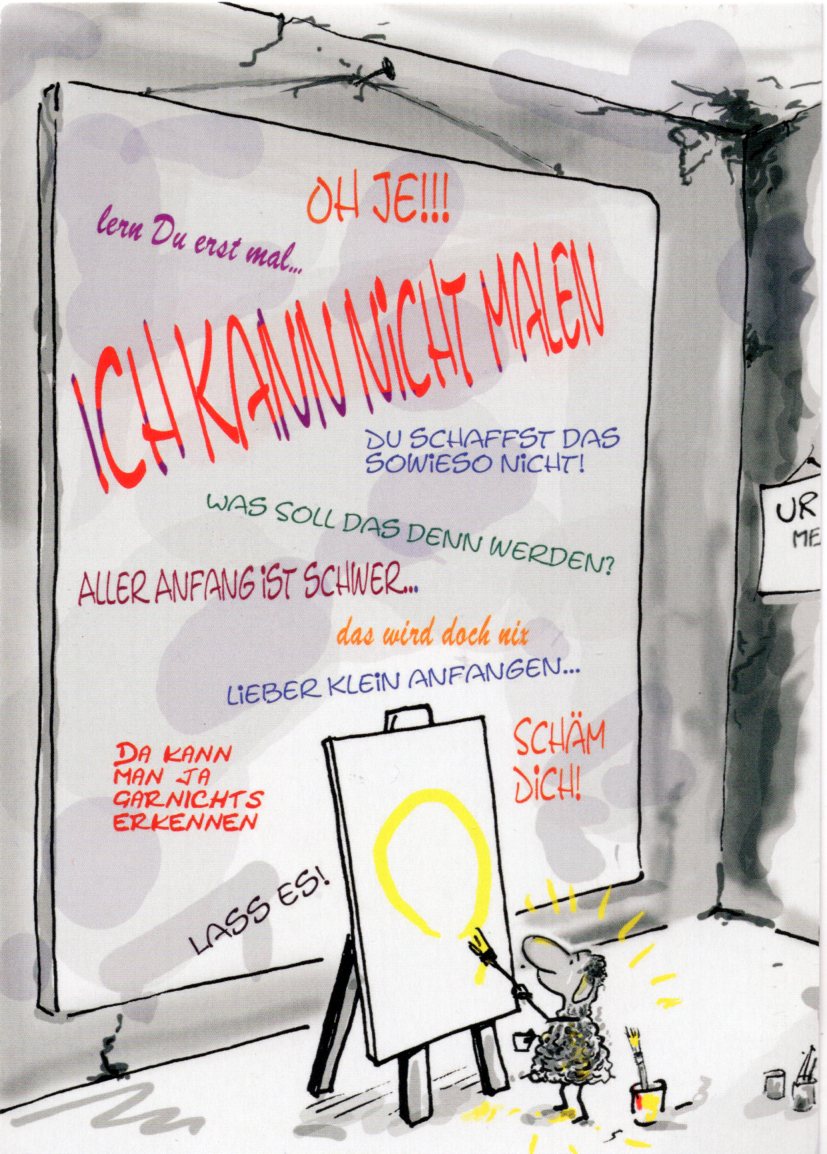 OH JE!!!
lern Du erst mal...
ICH KANN NICHT MALEN
DU SCHAFFST DAS
SOWIESO NICHT!
WAS SOLL DAS DENN WERDEN?
ALLER ANFANG IST SCHWER...
das wird doch nix
LIEBER KLEIN ANFANGEN...
SCHÄM
DICH!
DA KANN
MAN JA
GARNICHTS
ERKENNEN
LASS ES!
UR
ME